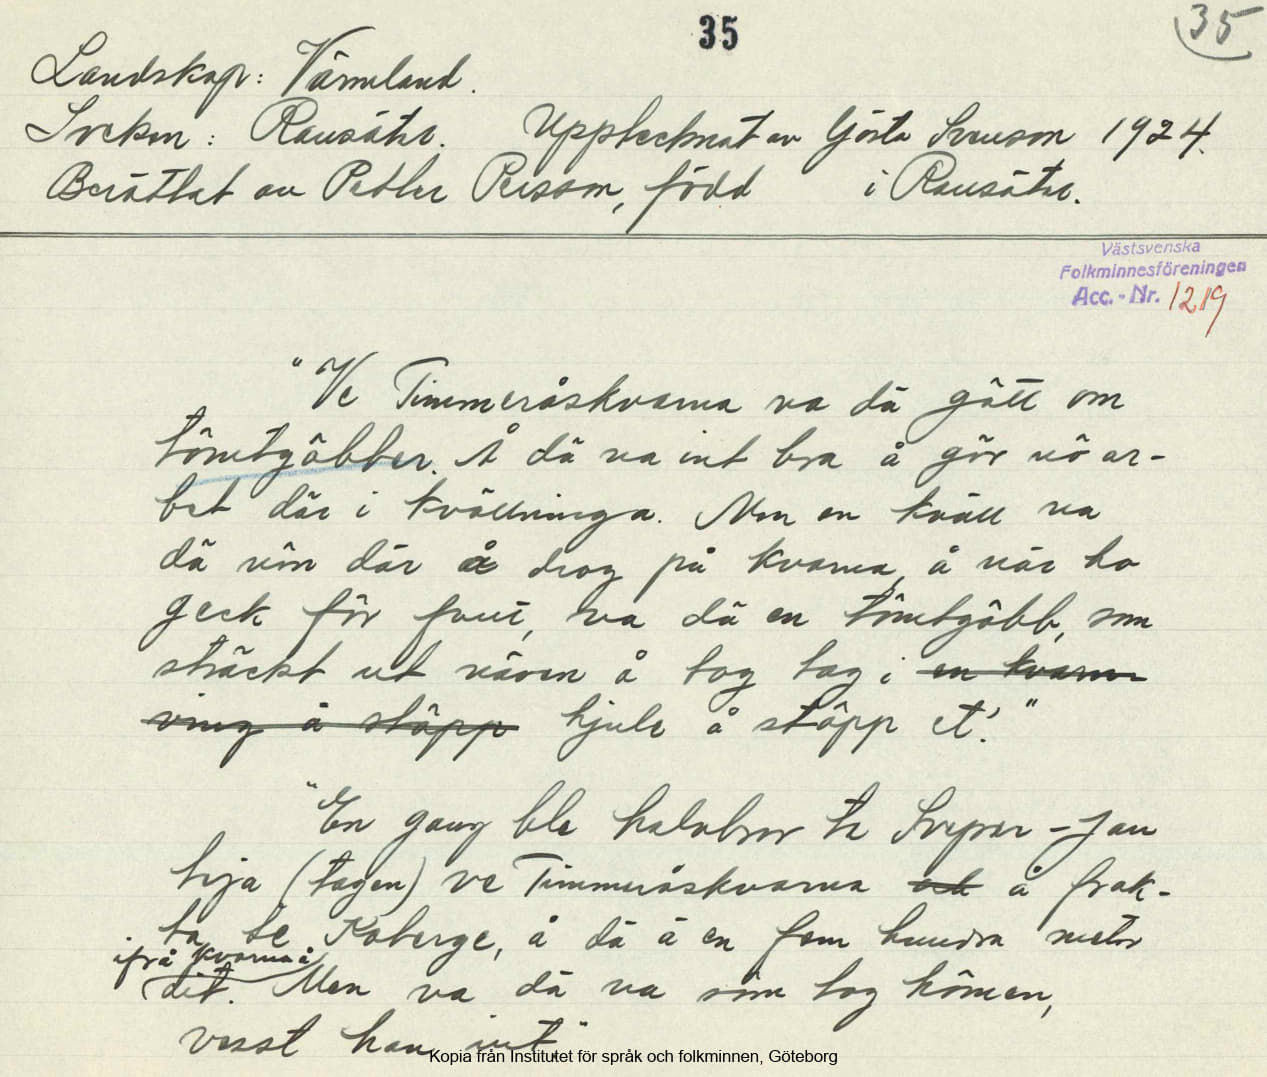 35
35
Landskap: Värmland.
Socken: Ransäter. Upptecknat av Gösta Svenson 1924.
Berättat av Petter Persson, född i Ransäter.
Västsvenska
Folkminnesföreningen
Acc.-Nr. 1219
"Ve Timmeråskvarna va dä gôtt om
tômtgôbber. Å dä va int bra å gör nô ar-
bet där i kvällninga. Men en kväll va
dä nôn där å drog på kvarna, å när ho
geck för fort, va dä en tômtgôbb, som
sträckt ut näven å tog tag i en kvarn
ving å stôpp hjule å stôpp et!"
"En gang ble halvbror te Sveper-Jan
hija (tagen) ve Timmeråskvarna och å frak-
ta te Kaberge, å dä ä en fem hundra meter
ifrå kvarna å
dit. Men va dä va sôm tog hômen,
vesst han int."
Kopia från Institutet för språk och folkminnen, Göteborg